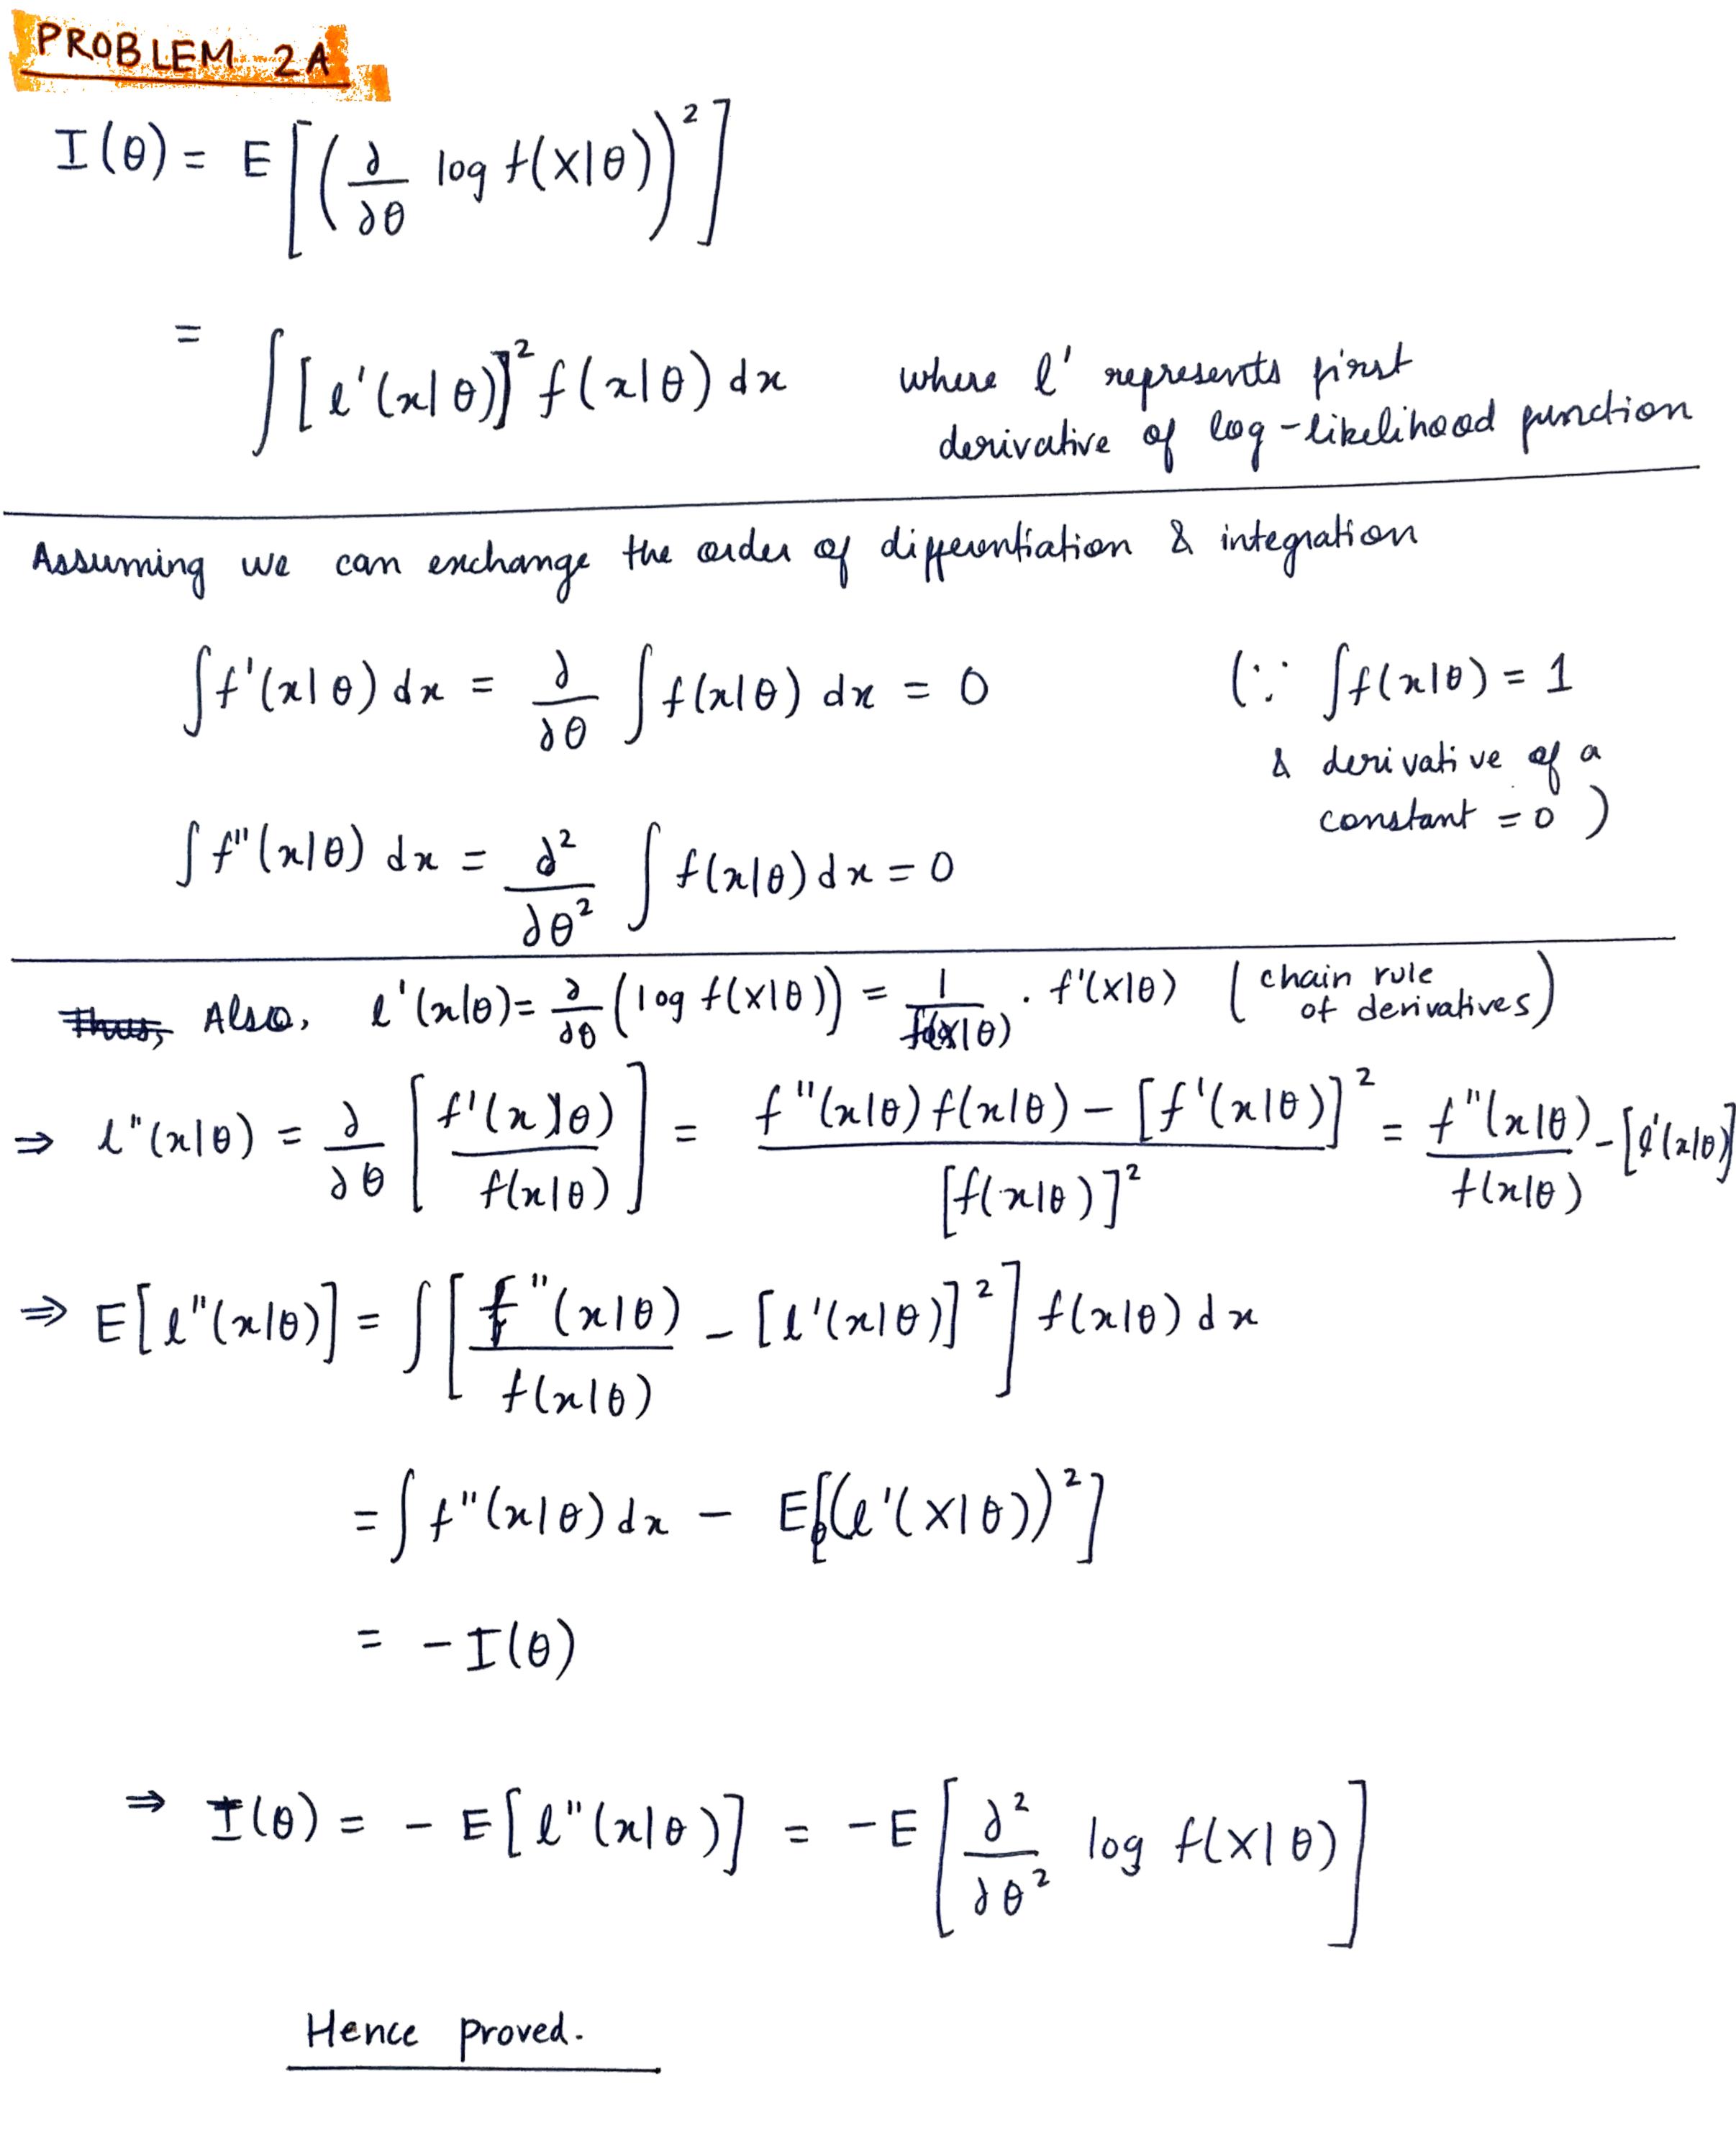 PROBLEM 2A
I(θ) = E[(∂/∂θ log f(X|θ))²]
= ∫[l'(x|θ)]² f(x|θ) dx where l' represents first
derivative of log-likelihood function
Assuming we can exchange the order of differentiation & integration
∫f'(x|θ) dx = ∂/∂θ ∫f(x|θ) dx = 0 (∵ ∫f(x|θ) = 1
& derivative of a
constant = 0)
∫f''(x|θ) dx = ∂²/∂θ² ∫f(x|θ) dx = 0
Thus, Also, l'(x|θ) = ∂/∂θ (log f(X|θ)) = 1/f(X|θ) · f'(X|θ) (chain rule
of derivatives)
⇒ l''(x|θ) = ∂/∂θ [f'(x|θ)/f(x|θ)] = f''(x|θ)f(x|θ) – [f'(x|θ)]²/[f(x|θ)]² = f''(x|θ)/f(x|θ) – [l'(x|θ)]
⇒ E[l''(x|θ)] = ∫[f''(x|θ)/f(x|θ) – [l'(x|θ)]²] f(x|θ) dx
= ∫f''(x|θ) dx – E[(l'(X|θ))²]
= –I(θ)
⇒ I(θ) = – E[l''(x|θ)] = –E[∂²/∂θ² log f(X|θ)]
Hence proved.